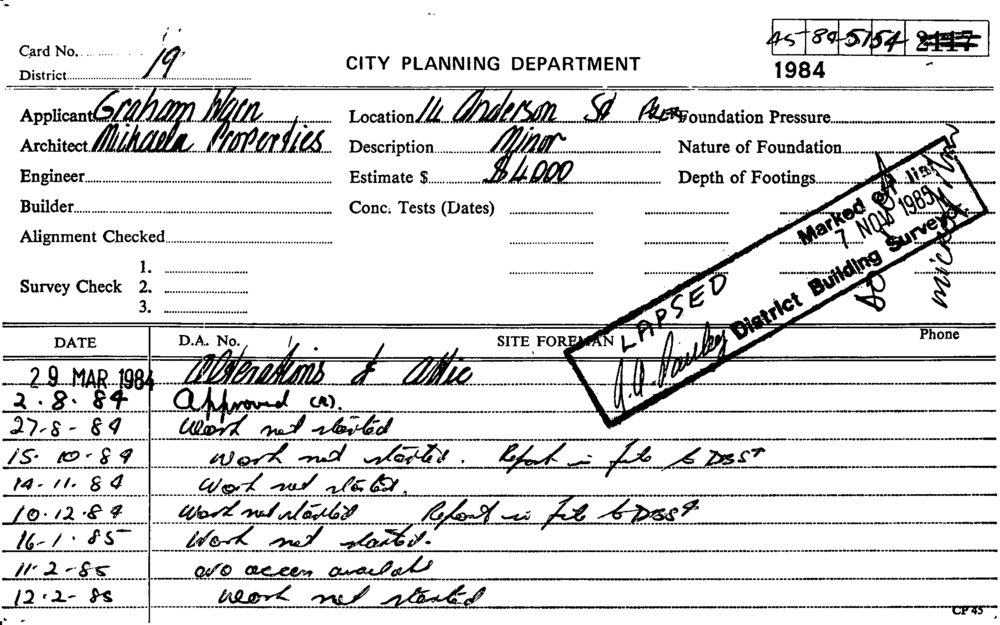 45 84 5154 2117
1984
Card No.
District 19
CITY PLANNING DEPARTMENT
Applicant Graham Warn
Location 14 Anderson St Alex
Foundation Pressure
Architect Michaela Properties
Description Minor
Nature of Foundation
Engineer
Estimate $ $4000
Depth of Footings
Builder
Conc. Tests (Dates)
Alignment Checked
Survey Check
1.
2.
3.
LAPSED
Marked Off list
7 NOV 1985
District Building Surveyor
DATE D.A. No. SITE FOREMAN Phone
29 MAR 1984 Alterations & Attic
2.8.84 Approved (R).
27-8-84 Work not started
15.10.84 Work not started. Report in file to DBS
14.11.84 Work not started.
10.12.84 Work not started Report in file to DBS
16-1.85 Work not started.
11.2-85 no access available
12.2-85 Work not started
CP 45